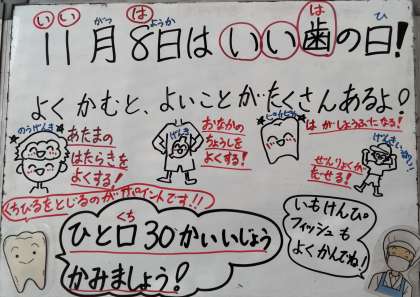 いい は
がつ ようか は ひ
11月8日はいい歯の日!
よくかむと、よいことがたくさんあるよ!
のうげんき
あたまの
はたらきを
よくする!
げんき
おなかの
ちょうしを
よくする!
はがじょうぶになる!
ぜんりょくが
だせる!
くちびるをとじるのがポイントです!!
くち
ひと口30かいいじょう
かみましょう!
いもけんぴ
フィッシュも
よくかんでね!